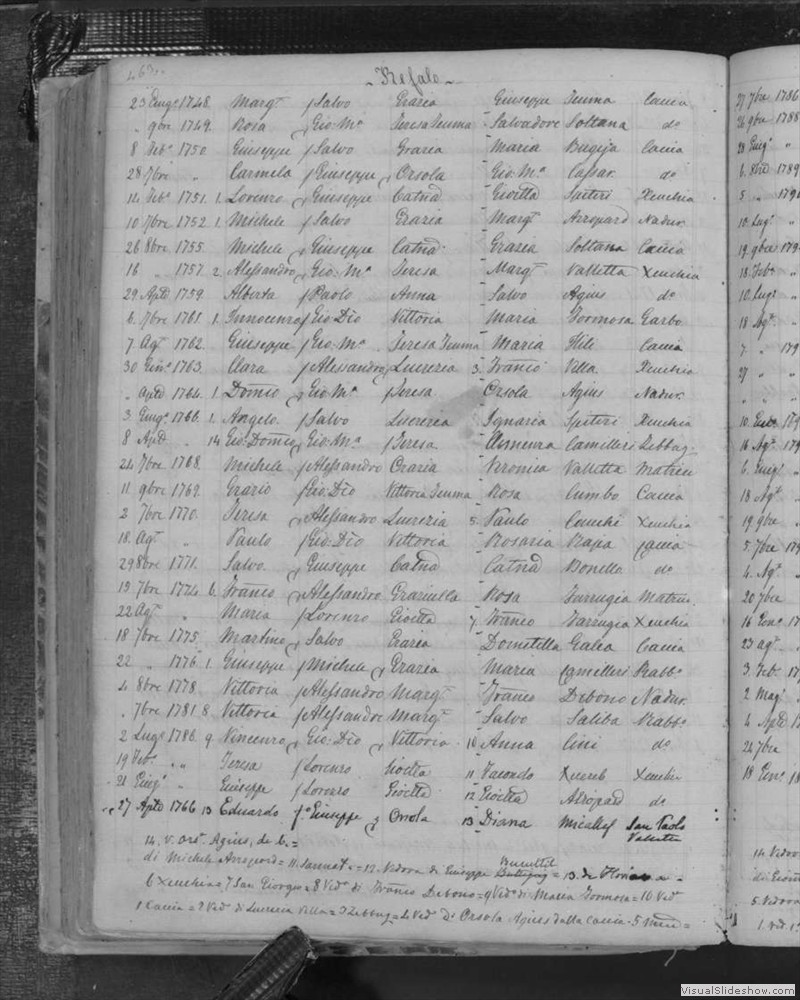 463
Refalo
23 Giug.o 1748. Marg.ta f. Salvo Grazia Giuseppe Tewma Caccia
" 9bre 1749. Rosa Gio: M.a Teresa Tewma Salvadore Soltana do
8 Feb.o 1750. Giuseppe f. Salvo Grazia Maria Bugeja Caccia
28 7bre " Carmela f. Giuseppe Orsola Gio: M.a Cassar do
14 Feb.o 1751. 1. Lorenzo Giuseppe Catna Gioitta Spiteri Xeuchia
10 7bre 1752. 1. Michele f. Salvo Grazia Marg.ta Azzopard Nadur.
26 8bre 1755. Michele Giuseppe Catna Grazia Soltana Caccia
16 " 1757. 2. Alessandro Gio: M.a Teresa Marg.ta Valletta Xeuchia
29 Aple 1759. Alberta f. Paolo Anna Salvo Agius do
6. 7bre 1761. 1. Innocenzo f. Gio: Dio Vittoria Maria Formosa Garbo
7 Ag.to 1762. Giuseppe f. Gio: M.a Teresa Tewma Maria Hili Caccia
30 Gen.o 1763. Clara f. Alessandro Lucrezia 3. Franco Villa Xeuchia
" Aple 1764. 1. Domco Gio: M.a f. Teresa Orsola Agius Nadur.
3 Giug.o 1766. 1. Angelo f. Salvo Lucrezia Ignazia Spiteri Xeuchia
8 Aple " 14 Gio: Domco Gio: M.a f. Teresa Camilleri Zebbug
24 7bre 1768. Michele f. Alessandro Grazia Veronica Valletta Matrice
11 9bre 1769. Grazio f. Gio: Dio Vittoria Tewma Rosa Cumbo Caccia
2 7bre 1770. Teresa Alessandro Lucrezia 5. Paulo Xeuchia
18. Ag.to " Paulo f. Gio: Dio Vittoria Rosaria Rapa Caccia
29 8bre 1771. Salvo. Giuseppe Catna Catna Bonello do
13 7bre 1774. 6. Franco Alessandro Graziulla Rosa Farrugia Matrice
22 Ag.to " Maria f. Lorenzo Gioitta 7 Franco Farrugia Xeuchia
18 7bre 1775. Martino Salvo Grazia Domitilla Galea Caccia
22 " 1776. 1 Giuseppe f. Michele Grazia Maria Camilleri Rabbo
4 8bre 1778. Vittoria f. Alessandro Marg.ta Franco Debono Nadur.
" 7bre 1781 8. Vittoria f. Alessandro Marg.ta Salvo Saliba Rabbo
2 Lug.o 1786. 9. Vincenzo Gio: Dio Vittoria 10 Anna Cini do
19 Feb.o " " Teresa f. Lorenzo Gioitta 11 Facondo Xuereb Xeuchia
21 Giug.o " Giuseppe f. Lorenzo Gioitta 12 Gioitta Azzopard do
27 Aple 1766 13 Eduardo f.o Giuseppe Orsola 13 Diana Micallef San Paolo
Valletta
14. v. Ors.a Agius, de 6. =
di Michele Azzopard = 11. Sannat. = 12. Vedova di Giuseppe Buttigieg = 13. de Floriana =
6 Xeuchia = 7 San Giorgio = 8 Ved.a di Franco Debono = 9 Ved.o di Maria Formosa = 10 Ved.a
1 Caccia = 2 Ved.o di Lucrezia Villa = 3 Zebbug = 4 Ved.o D' Orsola Agius dalla Caccia - 5 =
27 7bre 1786
26 9bre 1788
28 Giug.o "
6. 8bre 1789
5 " 179
10. Lug.o "
19. 9bre 179
18. Feb.o "
10. Lug.o "
18 Ag.to "
7 " 179
27 " "
" " "
16 Ag.to 179
6. Giug.o "
18 Ag.to "
19 9bre "
5. 7bre 179
4. Ag.to "
20 7bre
16 Gen.o 17
23 ag.to "
3. Feb.o 17
2 Mag.o "
4. Aple 17
24 7bre
18 Gen.o 18
14 Vedov
5. Vedova
1. Ved.
VisualSlideshow.com